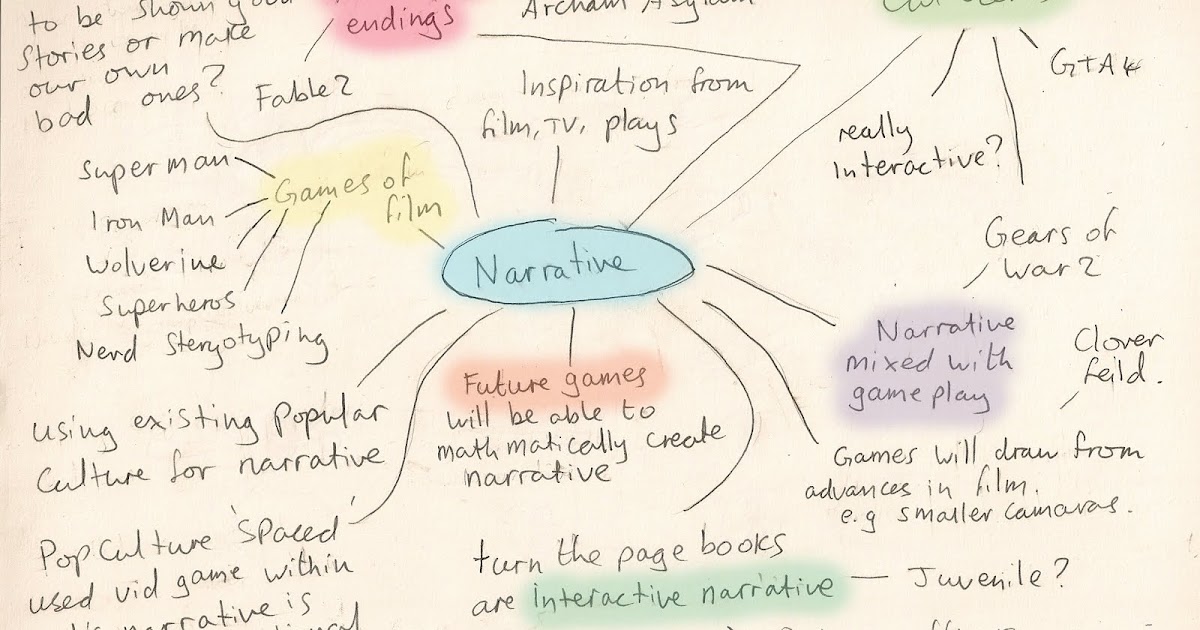 to be shown good
Stories or make
our own
bad ones?
endings
Archam Asylum
GTA4
Fable 2
Inspiration from
film, TV, plays
really
Interactive?
Superman
Games of
film
Iron Man
Wolverine
Superheros
Nerd Steryotyping
Narrative
Gears of
War 2
Narrative
mixed with
game play
Clover
feild.
Future games
will be able to
mathmatically create
narrative
using existing Popular
Culture for narrative
Games will draw from
advances in film.
e.g smaller camaras.
Pop Culture 'Spaced'
used vid game within
narrative is
turn the page books
are interactive narrative
Juvenile?